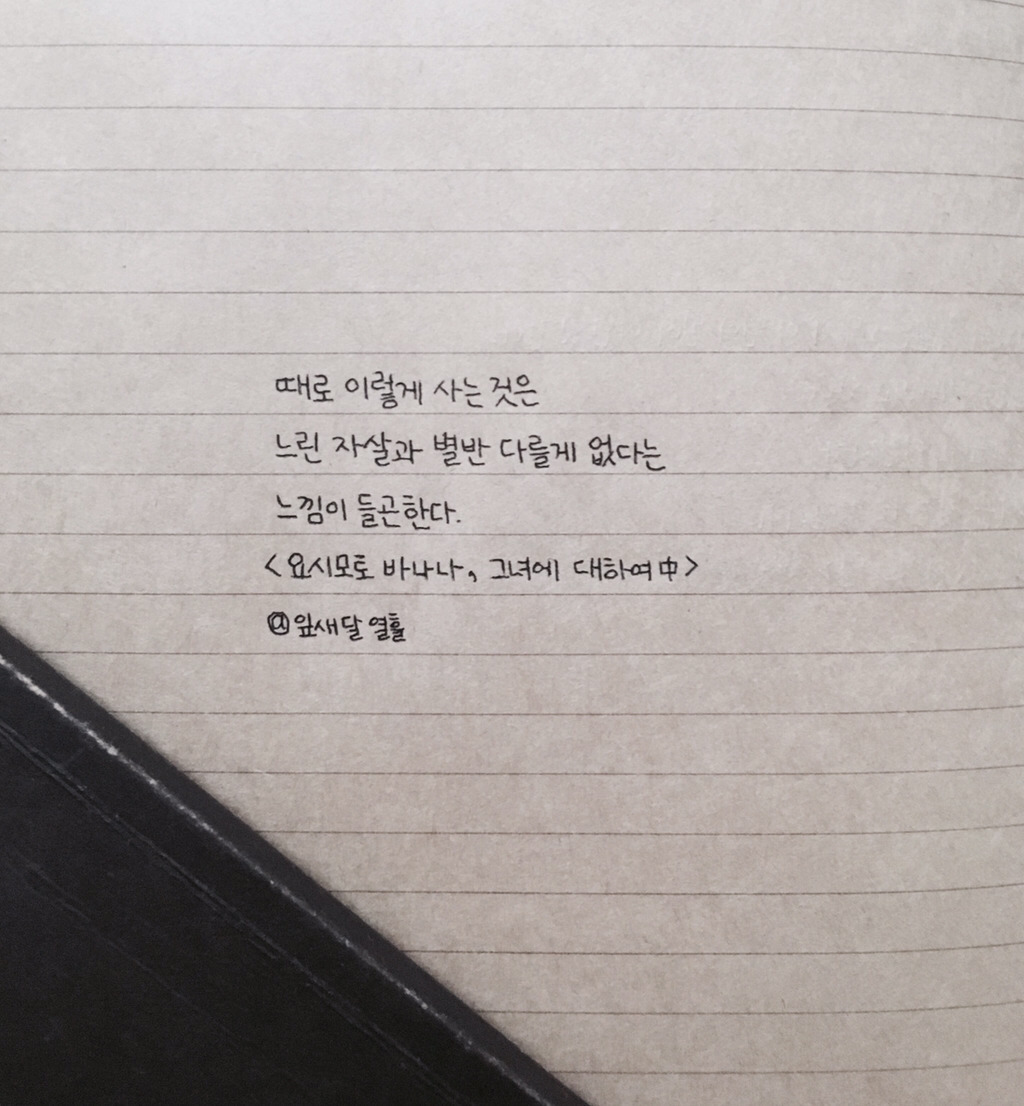 때로 이렇게 사는 것은
느린 자살과 별반 다를게 없다는
느낌이 들곤한다.
<요시모토 바나나, 그녀에 대하여 中>
@잎새달 열흘